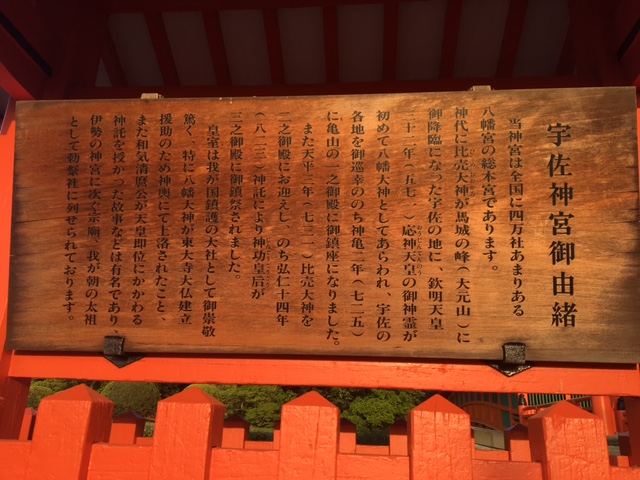 宇佐神宮御由緒
当神宮は全国に四万社あまりある
八幡宮の総本宮であります。
神代に比売大神が馬城の峰（大元山）に
御降臨になった宇佐の地に、欽明天皇
三十二年（五七一）応神天皇の御神霊が
初めて八幡大神としてあらわれ、宇佐の
各地を御巡幸ののち神亀二年（七二五）
に亀山の一之御殿に御鎮座になりました。
また天平三年（七三一）比売大神を
二之御殿にお迎えし、のち弘仁十四年
（八二三）神託により神功皇后が
三之御殿に御鎮祭されました。
皇室は我が国鎮護の大社として御崇敬
篤く、特に八幡大神が東大寺大仏建立
援助のため神輿にて上洛されたこと、
また和気清麿公が天皇即位にかかわる
神託を授かった故事などは有名であり、
伊勢の神宮に次ぐ宗廟、我が朝の太祖
として勅祭社に列せられております。